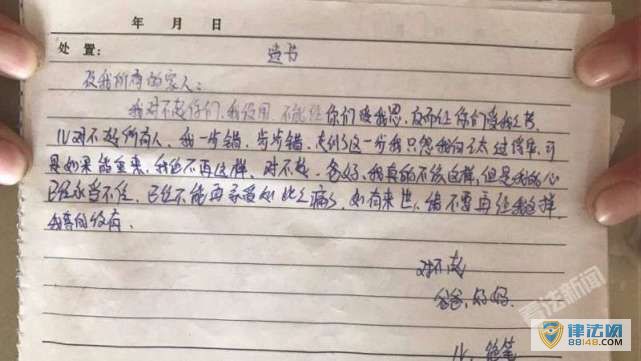 年 月 日
处置:
遗书
及我所有的家人:
我对不起你们,我没用,不能让你们
儿对不起所有人,我一步错,步步错,走到了这一步我只怨我自己太过
是如果能重来,我绝不再这样,对不起,爸妈,我真的不该这样,但是我的心
已经承当不住,已经不能再承受如此之痛了,如有来世,绝不要再让我这样
对不起
爸爸,妈妈
儿
看法新闻
律法网
88148.com